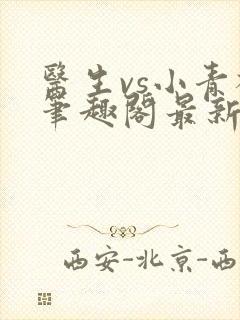 醫生vs小青
筆趣閣最新
西安-北京-西